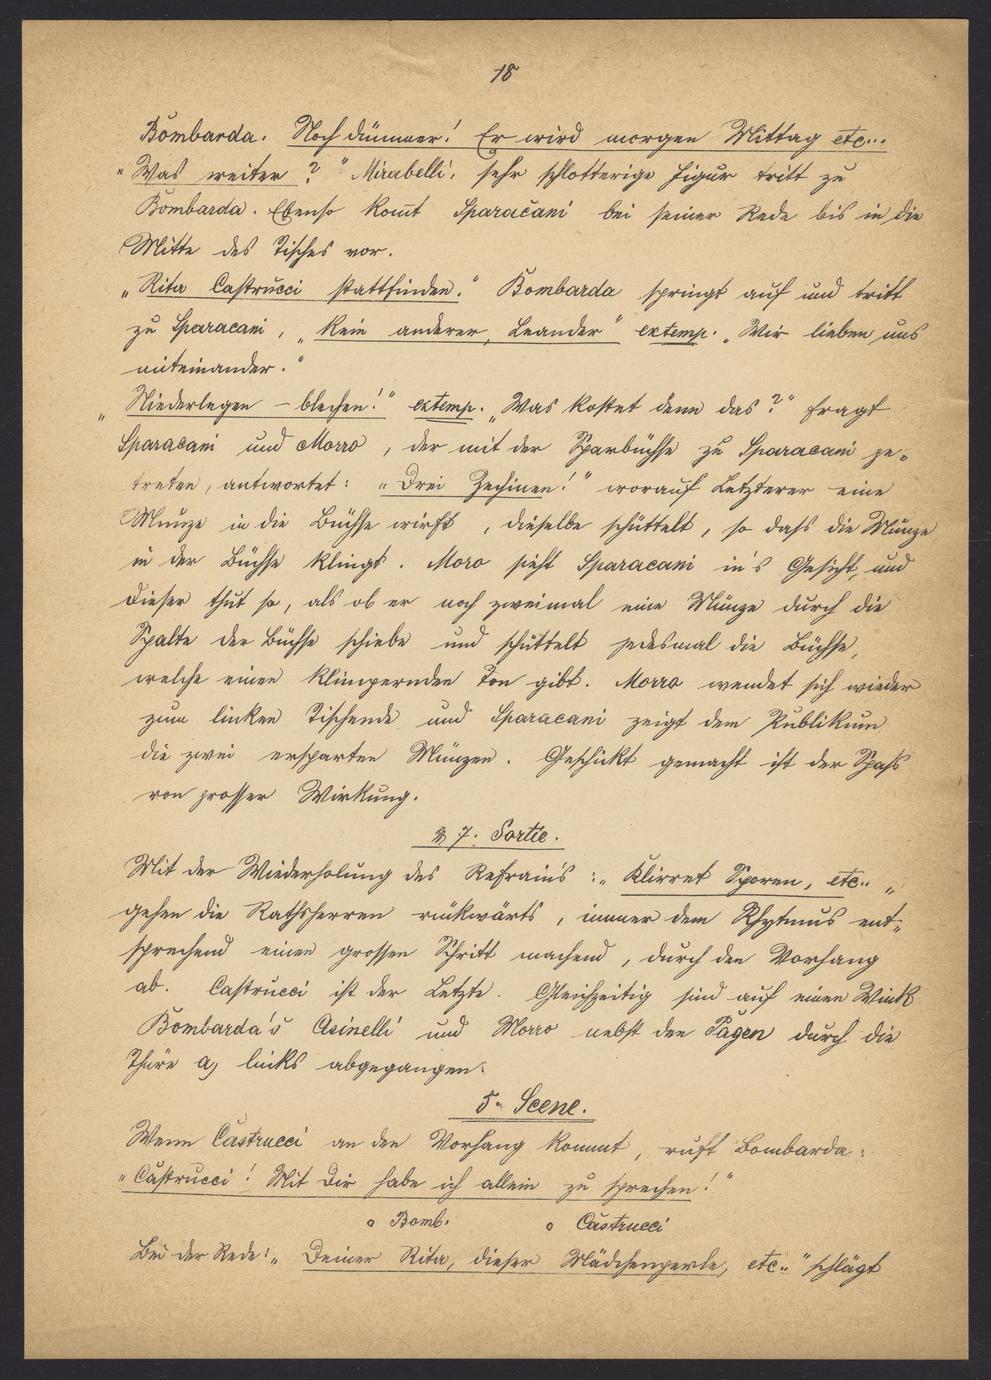 18
Bombarda. Noch dümmer! Er wird morgen Mittag etc...
"Was weiter?" Mirabelli, sehr schlotterige Figur tritt zu
Bombarda. Ebenso kom̄t Sparacani bei seiner Rede bis in die
Mitte des Tisches vor.
„Rita Castrucci stattfinden." Bombarda springt auf und tritt
zu Sparacani, „Kein anderer, Leander" extemp. „Wir lieben uns
miteinander."
„Niederlegen – blechen!" extemp. „Was kostet denn das?" fragt
Sparacani und Morro, der mit der Sparbüchse zu Sparacani ge-
treten, antwortet: „Drei Zechinen!" worauf Letzterer eine
Münze in die Büchse wirft, dieselbe schüttelt, so dass die Münze
in der Büchse klingt. Moro sieht Sparacani in's Gesicht, und
dieser thut so, als ob er noch zweimal eine Münze durch die
Spalte der Büchse schiebe und schüttelt jedesmal die Büchse,
welche einen klimpernden Ton gibt. Morro wendet sich wieder
zum linken Tischende und Sparacani zeigt dem Publikum
die zwei ersparten Münzen. Geschickt gemacht ist der Spass
von grosser Wirkung.
7. Sortie.
Mit der Wiederholung des Refrains: „Klirret Sporen, etc.."
gehen die Rathsherren rückwärts, immer dem Rhytmus ent-
sprechend einen grossen Schritt machend, durch den Vorhang
ab. Castrucci ist der Letzte. Gleichzeitig sind auf einen Wink
Bombarda's Asinelli und Morro nebst den Pagen durch die
Thüre a) links abgegangen.
5. Scene.
Wenn Castrucci an den Vorhang kommt, ruft Bombarda:
„Castrucci! Mit Dir habe ich allein zu sprechen!"
o Bomb. o Castrucci
Bei der Rede: „Deiner Rita, dieser Mädchenperle, etc.." schlägt